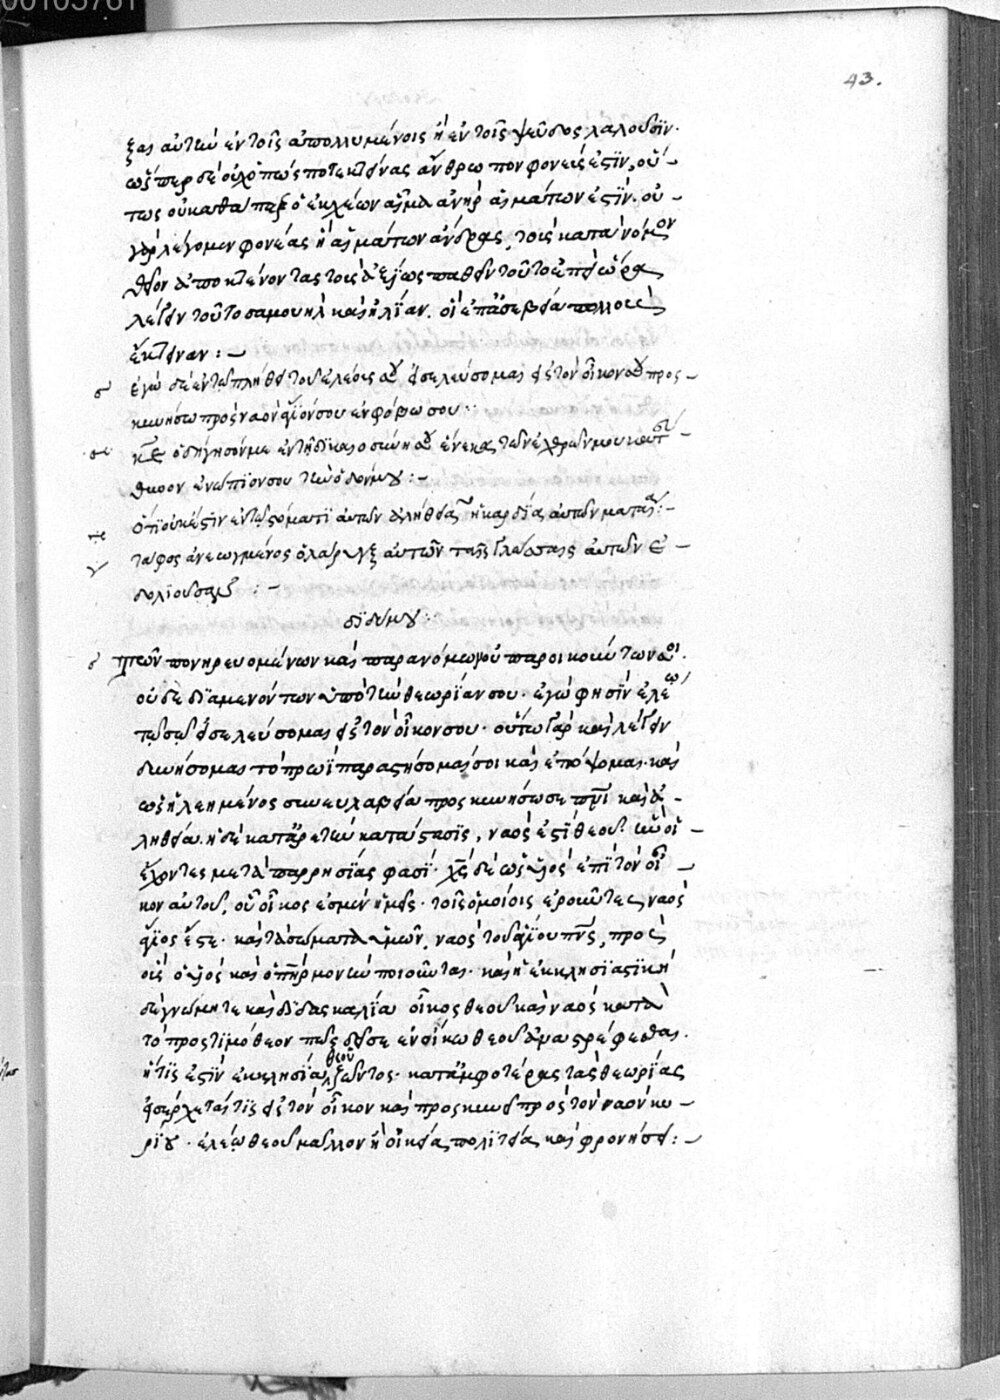 00105761
43.
ξαι αὐτῶν ἐν τοῖς ἀπολλυμένοις ἢ ἐν τοῖς ψεῦδος λαλοῦσιν.
ὥσπερ δὲ οὐχ ὁπώσποτε κτείνας ἄνθρωπον φονεύς ἐστιν, οὕ-
τως οὐ καθάπερ ὁ ἐκχέων αἷμα ἀνὴρ αἱμάτων ἐστίν. οὐ
γὰρ λέγομεν φονέας ἢ αἱμάτων ἄνδρας, τοὺς κατὰ νόμον
θεοῦ ἀποκτένοντας τοὺς ἀξίως παθεῖν τοῦτο
τοῦτο σαμουὴλ καὶ ἠλίαν. οἳ ἐπ' ἀσεβείᾳ πολλοὺς
ἔκτειναν :-
ἐγὼ δὲ ἐν τῷ πλήθει τοῦ ἐλέους σου εἰσελεύσομαι εἰς τὸν οἶκόν σου προς
κυνήσω πρὸς ναὸν ἅγιόν σου ἐν φόβῳ σου :
κε ὁδήγησόν με ἐν τῇ δικαιοσύνῃ σου ἕνεκα τῶν ἐχθρῶν μου κατεύ
θυνον ἐνώπιόν σου τὴν ὁδόν μου :-
ὅτι οὐκ ἔστιν ἐν τῷ στόματι αὐτῶν ἀλήθεια ἡ καρδία αὐτῶν ματαία :-
τάφος ἀνεωγμένος ὁ λάρυγξ αὐτῶν ταῖς γλώσσαις αὐτῶν ἐ
δολιοῦσαν :-
διδύμου :
τῶν πονηρευομένων καὶ παρανόμων οὐ παροικούντων σοι.
οὐδὲ διαμενόντων ὑπὸ τὴν θεωρίαν σου. ἐγώ φησιν ἐλέῳ
τῷ σῷ εἰσελεύσομαι εἰς τὸν οἶκόν σου. οὕτω γὰρ καὶ λέγειν
δυνήσομαι τὸ πρωῒ παραστήσομαί σοι καὶ ἐπόψομαι. καὶ
ὡς ἠλεημένος σὺν εὐλαβείᾳ προσκυνήσω σε πνι καὶ ἀ-
ληθείᾳ. ἡ δὲ κατ' ἀρετὴν κατάστασις, ναός ἐστι θεοῦ ἣν οἱ
ἔχοντες μετὰ παρρησίας φασί. χς δὲ ὡς υἱὸς ἐπὶ τὸν οἶ-
κον αὐτοῦ, οὗ οἶκος ἐσμὲν ἡμεῖς. τοῖς ὁμοίοις ἐροῦντες ναὸς
ἅγιος ἔστε. καὶ τὰ σώματα ὑμῶν, ναὸς τοῦ ἁγίου πνς, πρὸς
οὓς ὁ υἱὸς καὶ ὁ πηρ μονὴν ποιοῦνται. καὶ ἡ ἐκκλησιαστικὴ
δὲ γνώμη τε καὶ διδασκαλία οἶκος θεοῦ καὶ ναὸς κατὰ
τὸ πρὸς τιμόθεον πῶς δεῖ σε ἐν οἴκῳ θεοῦ ἀναστρέφεσθαι.
ἥτις ἐστὶν ἐκκλησία θεοῦ ζῶντος. κατ' ἀμφοτέρας τὰς θεωρίας
εἰσέρχεταί τις εἰς τὸν οἶκον καὶ προσκυνεῖ πρὸς τὸν ναὸν κυ-
ρίου. ἐλέῳ θεοῦ μᾶλλον ἢ οἰκείᾳ πολιτείᾳ καὶ φρονήσει :-